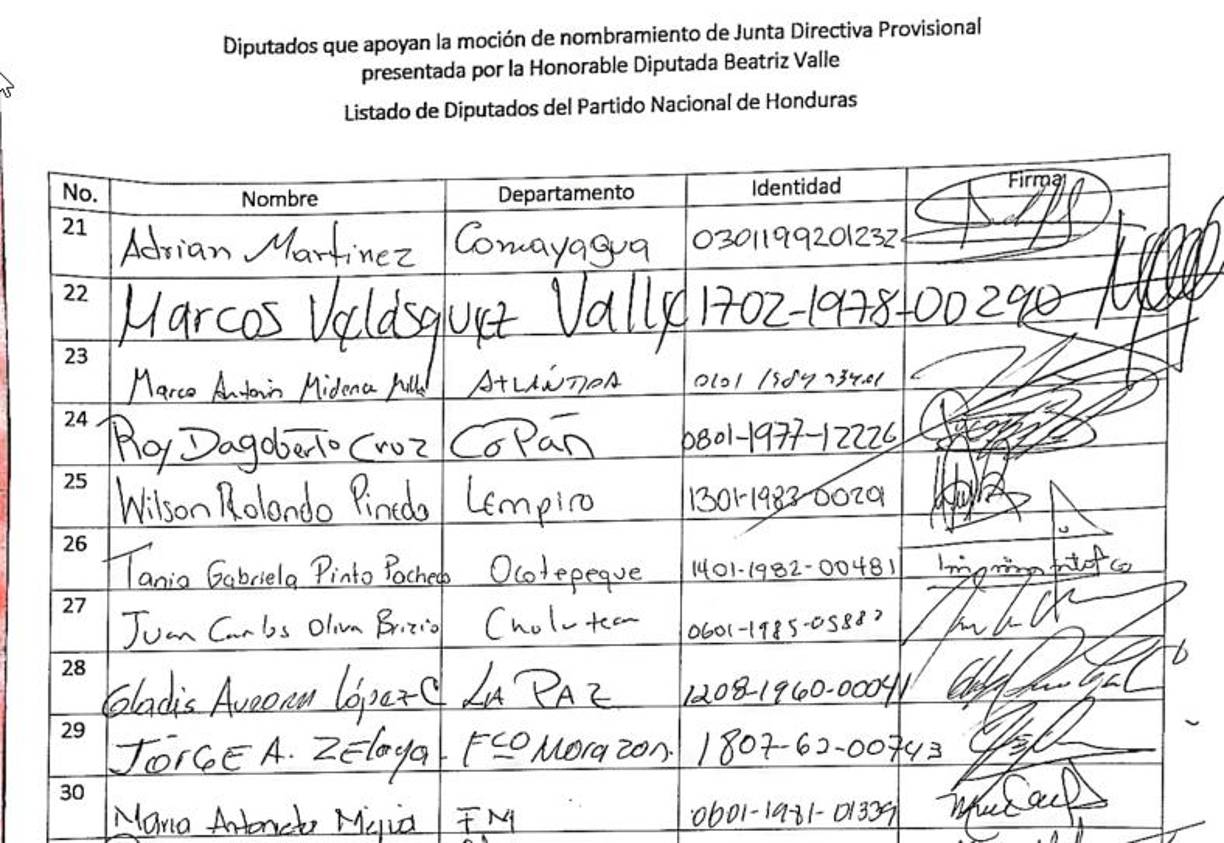 Diputados que apoyan la moción de nombramiento de Junta Directiva Provisional
presentada por la Honorable Diputada Beatriz Valle
Listado de Diputados del Partido Nacional de Honduras
No. Nombre Departamento Identidad Firma
21 Adrian Martinez Comayagua 0301199201232
22 Marcos Velásquez Valle 1702-1978-00290
23 Marco Antonio Midence ATLÁNTIDA 0101
24 Roy Dagoberto Cruz Copán 0801-1977-12226
25 Wilson Rolando Pineda Lempira 1301-1983-00201
26 Tania Gabriela Pinto Pacheco Ocotepeque 1401-1982-00481
27 Juan Carlos Oliva Brizio Choluteca 0601-1985-
28 Gladis Aurora López C LA PAZ 1208-1960-00041
29 JORGE A. ZElaya. Fco Morazon. 1807-62-00743
30 Maria Antonieta Mejia FM 0601-1981-01339